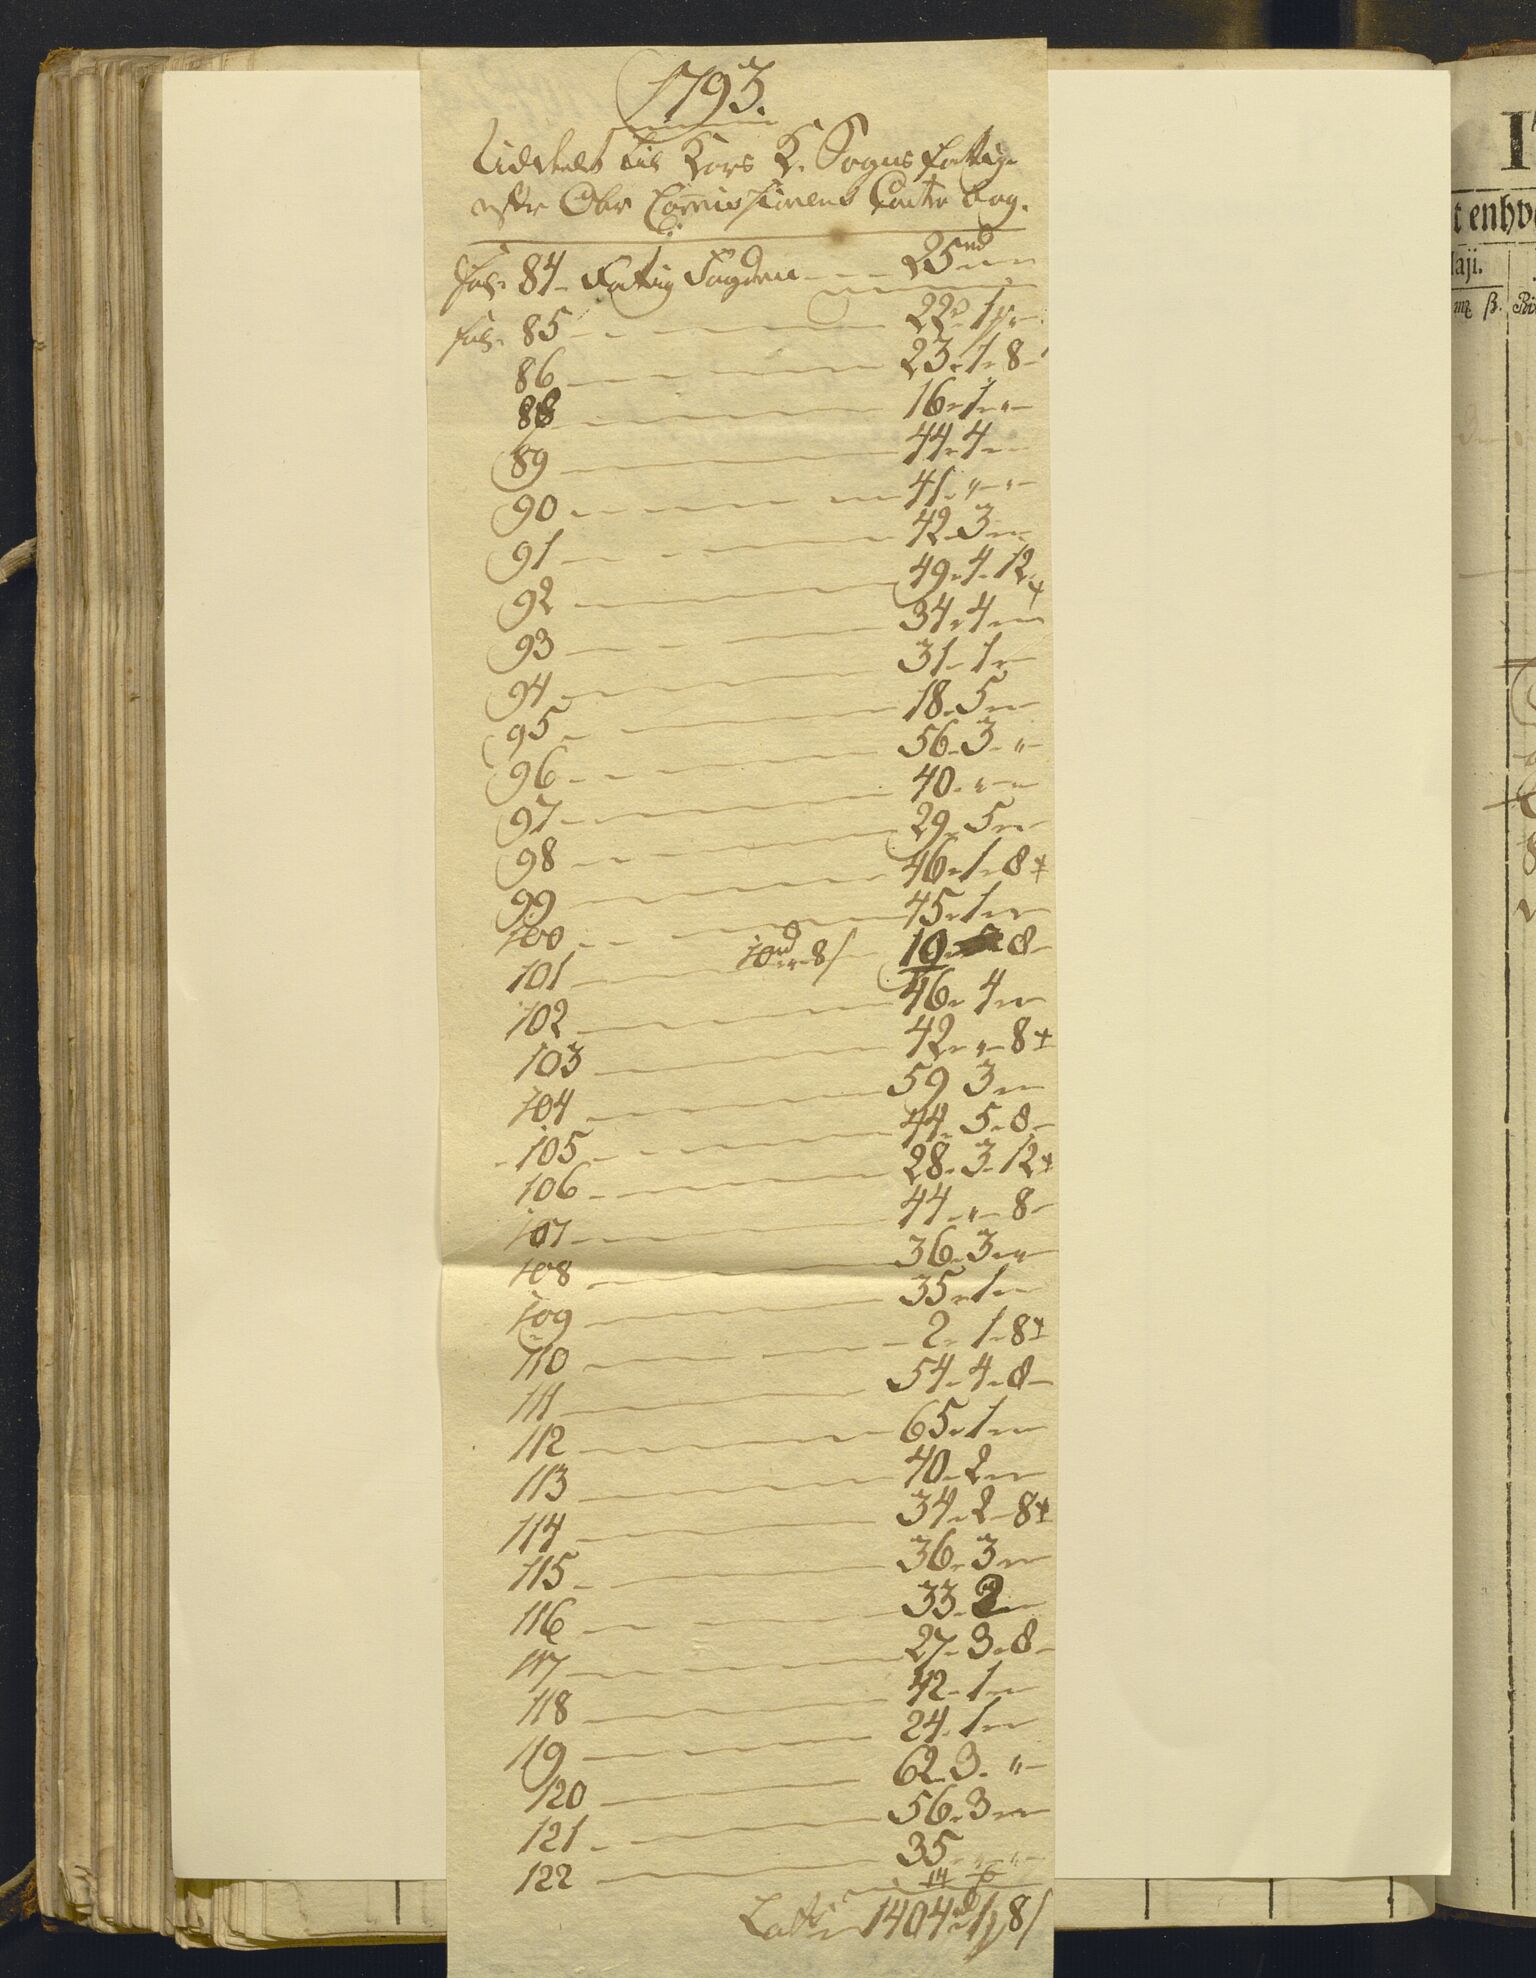 1793.
Uddeelt til Kors K. Sogns Fattige
efter Ober Com̄issionens Contra Bog.
Fol. 84 - Fattig Fogden - - 25 rd " "
Fol. 85 - - 22 rd 1 " -
86 - - 23 - 1 - 8 -
88 - - 16 - 1 - " -
89 - - 44 - 4 - "
90 - - 41 - " - " -
91 - - 42 - 3 - "
92 - - 49 - 4 - 12 +
93 - - 34 - 4 - "
94 - - 31 - 1 - "
95 - - 18 - 5 - "
96 - - 56 - 3 - " -
97 - - 40 - " - "
98 - - 29 - 5 - "
99 - - 46 - 1 - 8 +
100 - - 45 - 1 - "
101 - - 10 rd " - 8 / 10 - 8 -
102 - - 46 - 4 - "
103 - - 42 - " - 8 +
104 - - 59 3 - "
105 - - 44 - 5 - 8 -
106 - - 28 - 3 - 12 +
107 - - 44 - " - 8 -
108 - - 36 - 3 - " -
109 - - 35 - 1 - "
110 - - 2 - 1 - 8 +
111 - - 54 - 4 - 8 -
112 - - 65 - 1 - "
113 - - 40 - 2 - "
114 - - 34 - 2 - 8 +
115 - - 36 - 3 - "
116 - - 33 - 2 - "
117 - - 27 - 3 - 8 -
118 - - 42 - 1 - "
119 - - 24 - 1 - "
120 - - 62 - 3 - " -
121 - - 56 - 3 - "
122 - - 35 - " - " -
14
Latus 1404 rd 1 8 /
t enhv
laji.
mꝶ ß. Ri